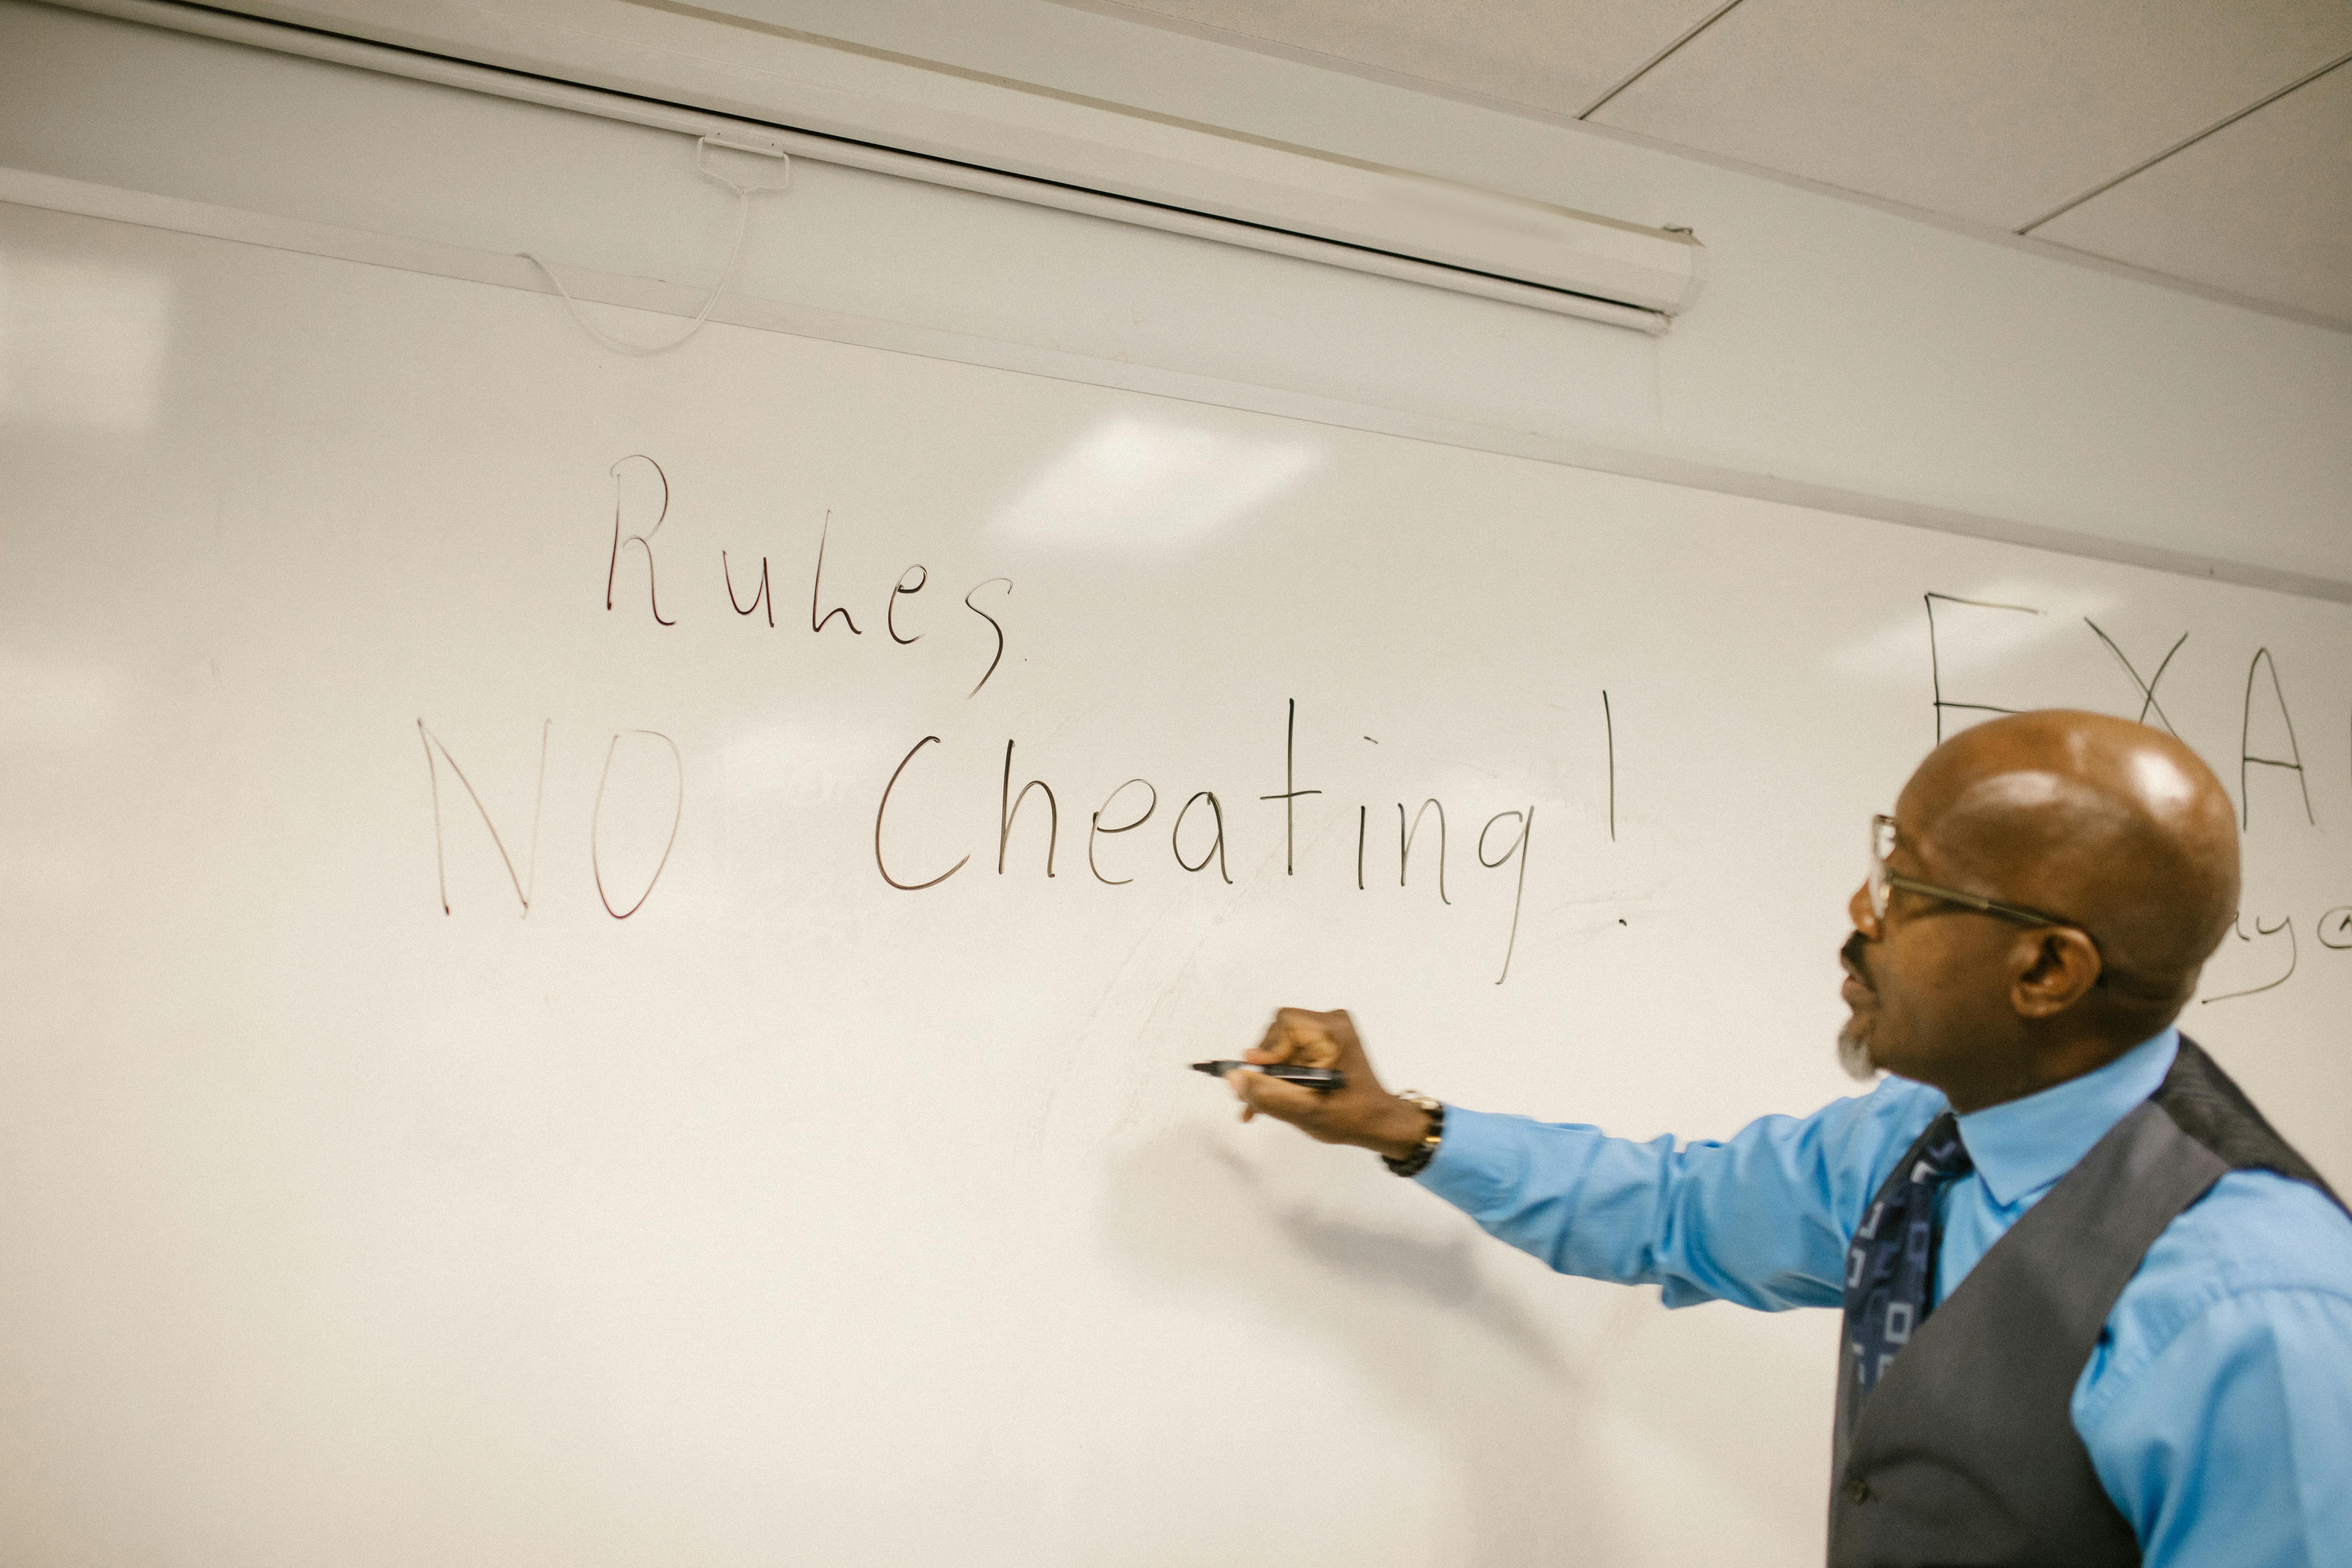 Rules
NO Cheating!
EXA
ay@